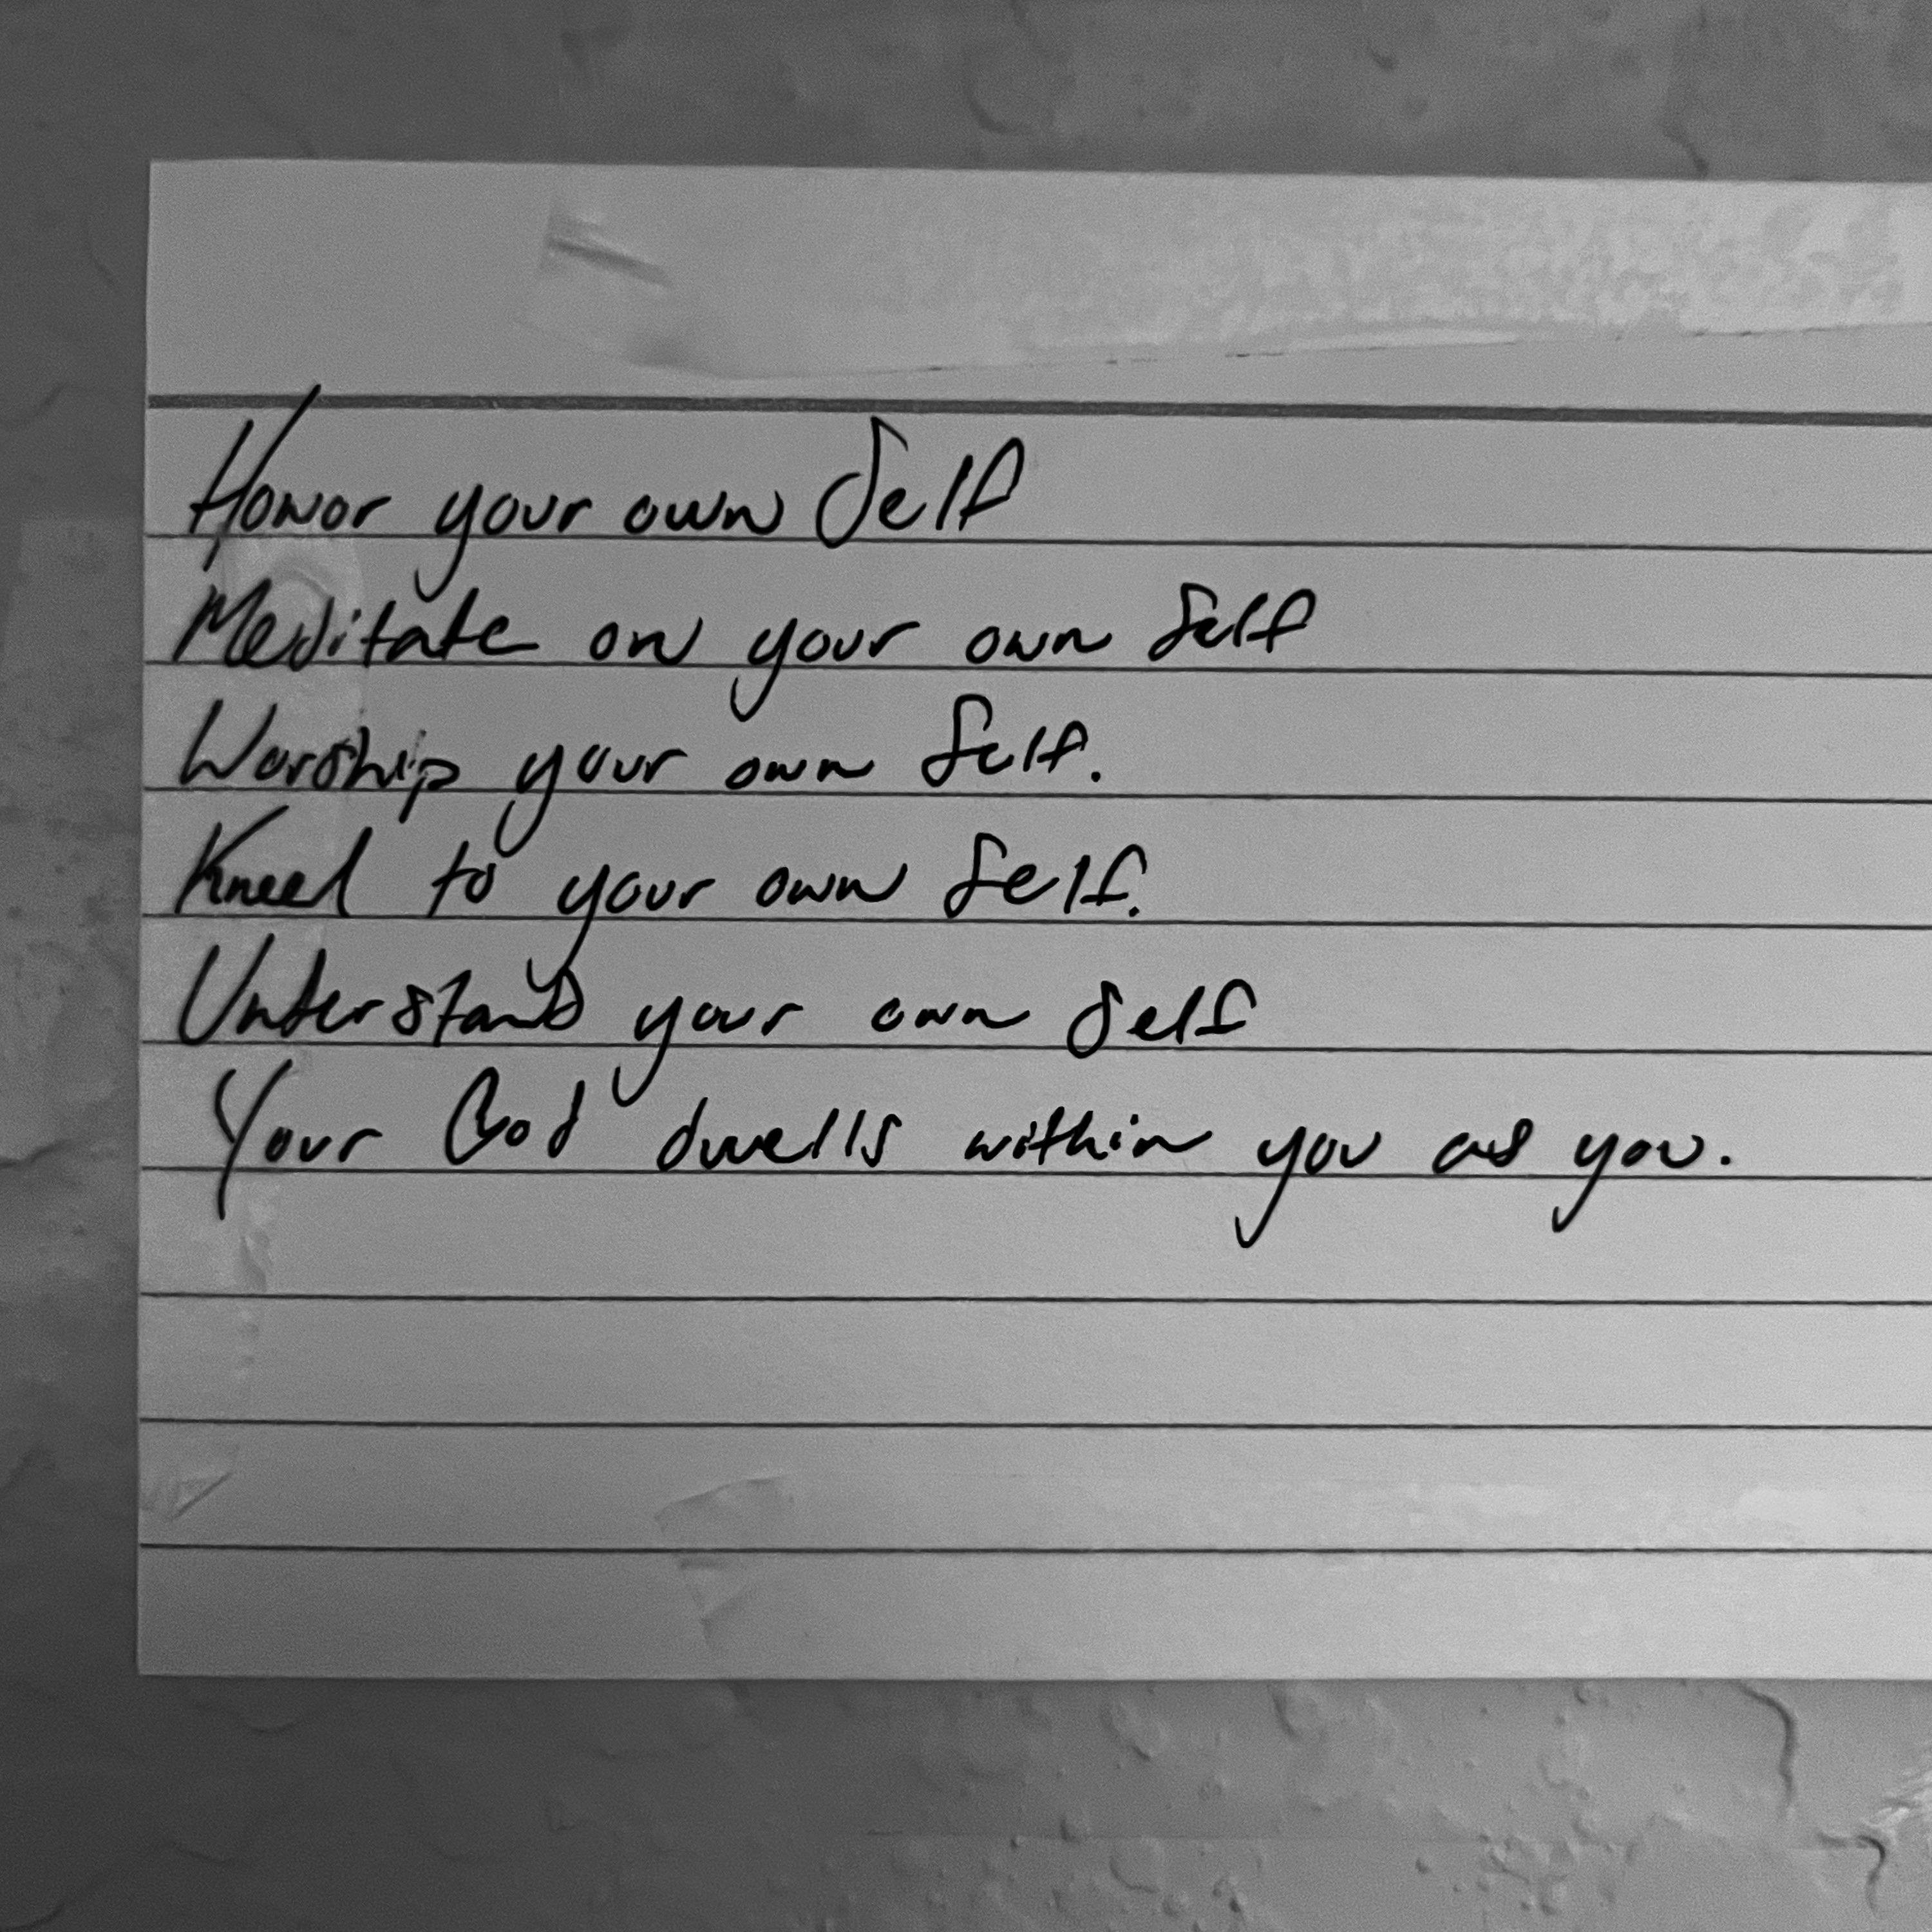 Honor your own Self
Meditate on your own Self
Worship your own Self.
Kneel to your own Self.
Understand your own Self
Your God dwells within you as you.